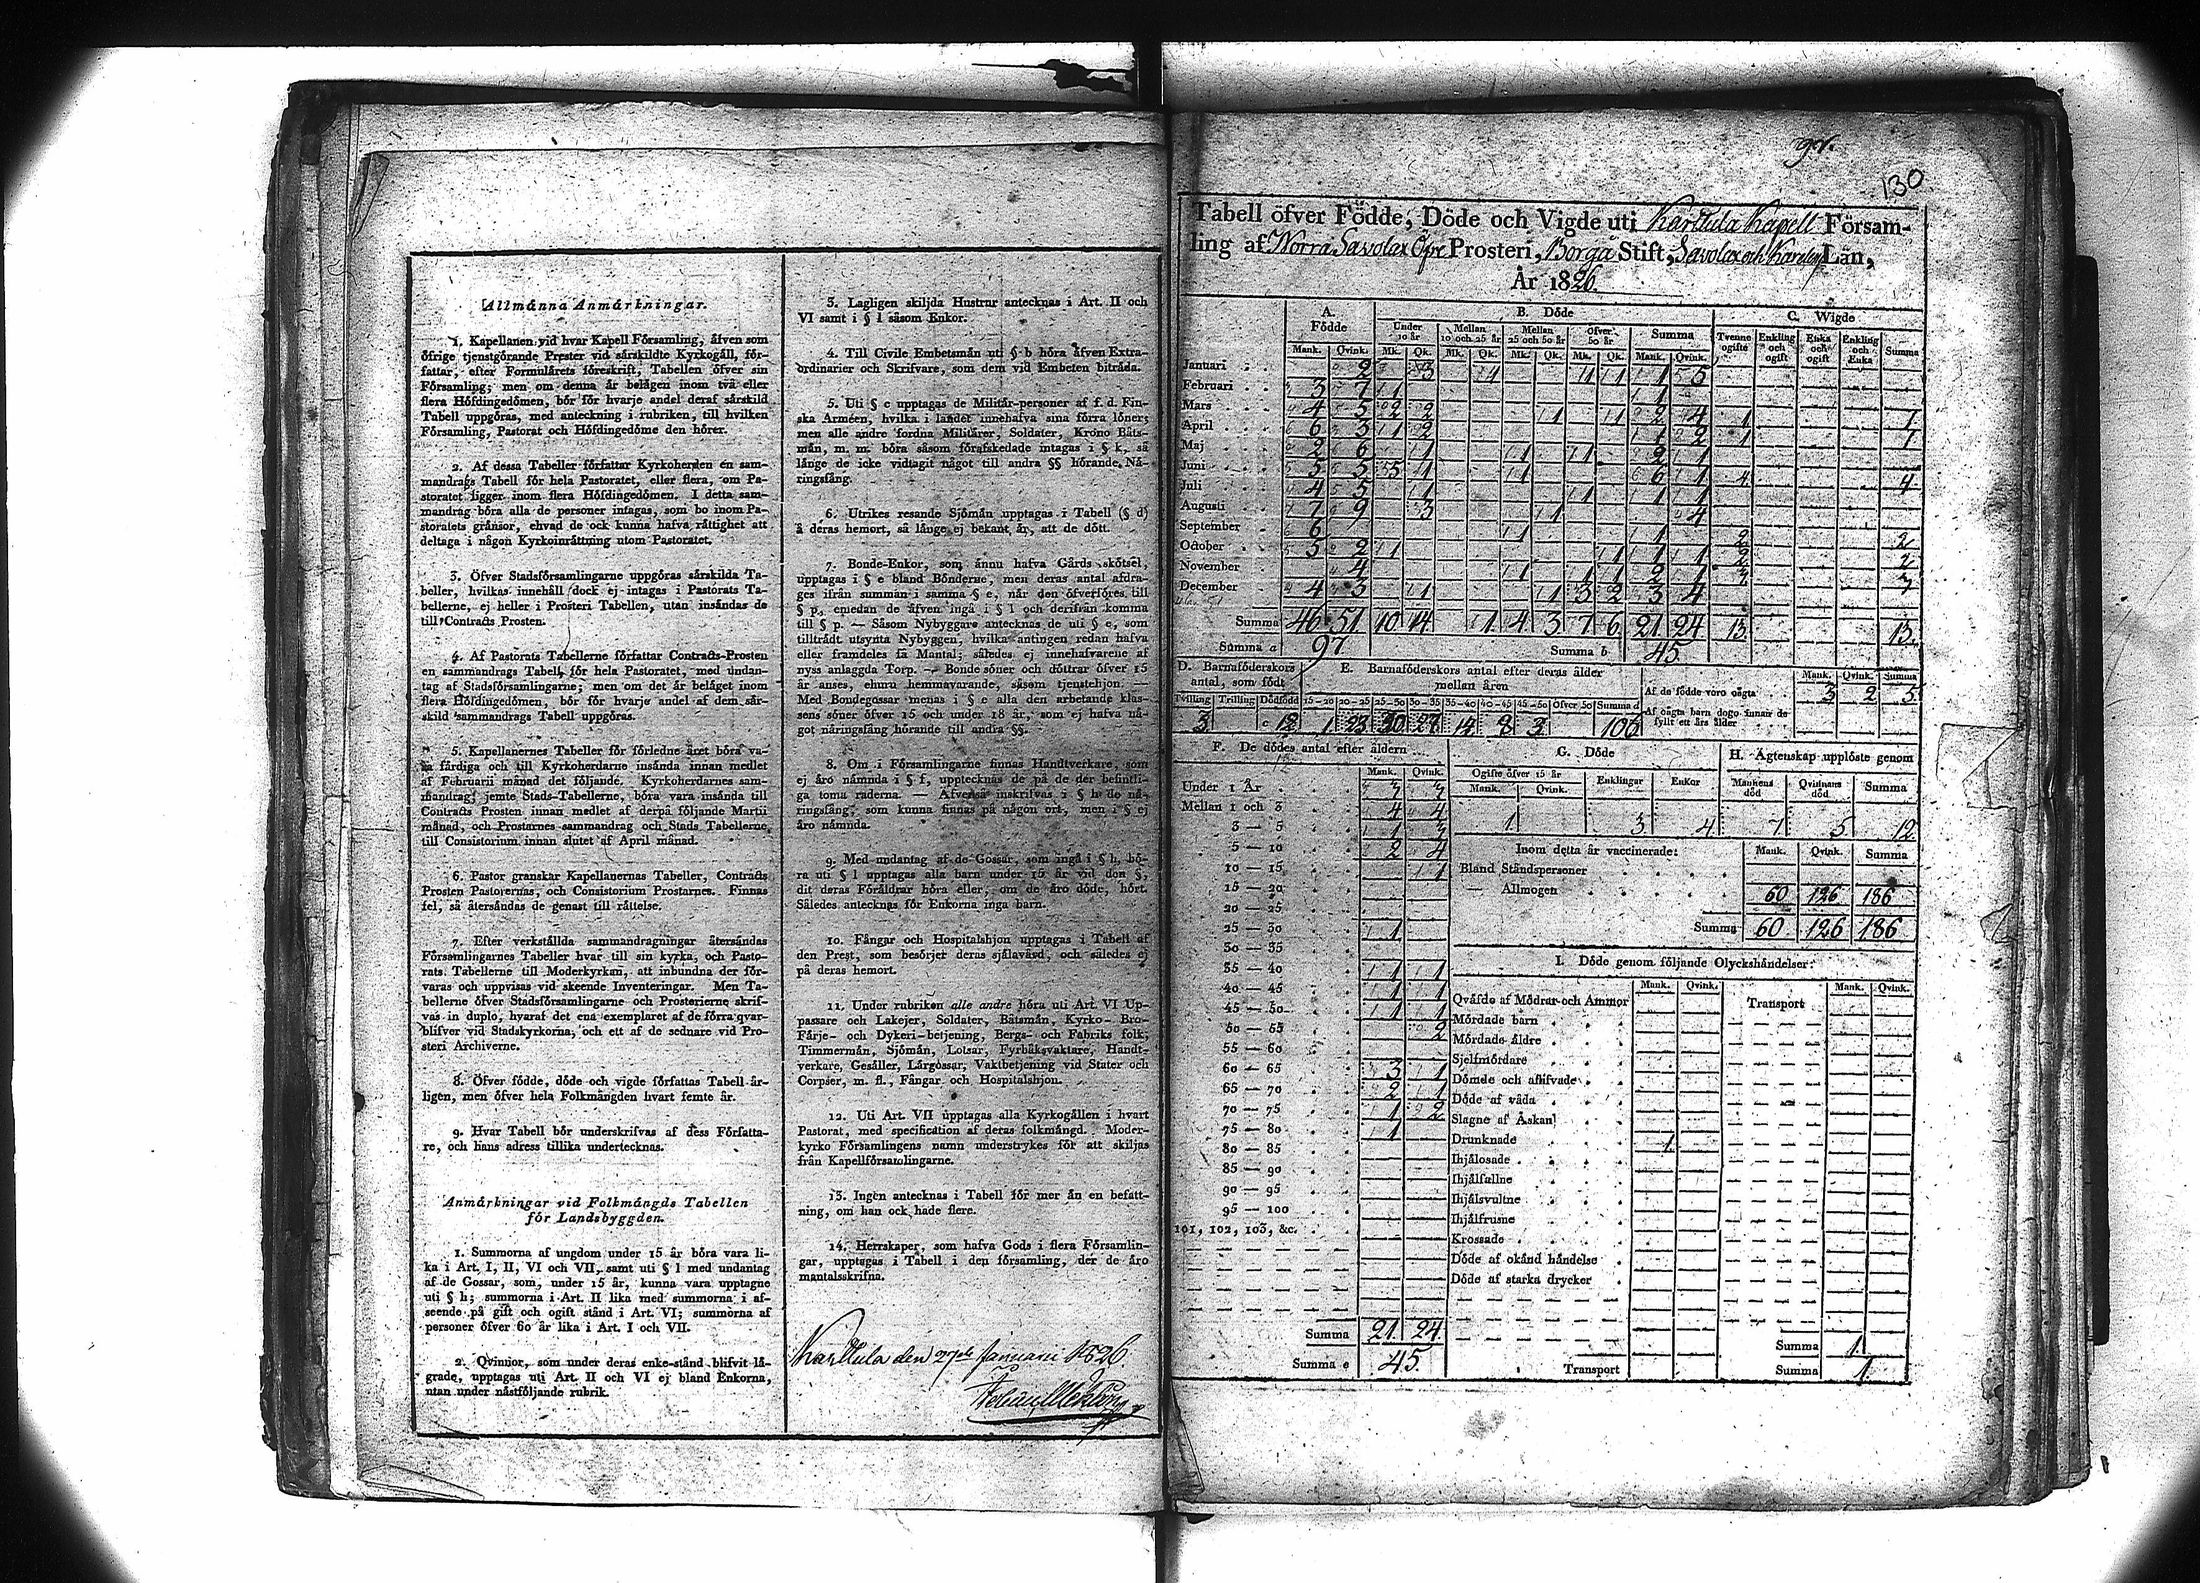 Allmänna Anmärkningar.
1. Kapellanen vid hvar Kapell Församling, äfven som
öfrige tjenstgörande Prester vid särskildte Kyrkogäll, för-
fattar, efter Formulärets föreskrift, Tabellen öfver sin
Församling; men om denna är belägen inom två eller
flera Höfdingedömen, bör för hvarje andel deraf särskild
Tabell uppgöras, med anteckning i rubriken, till hvilken
Församling, Pastorat och Höfdingedöme den hörer.
2. Af dessa Tabeller författar Kyrkoherden en sam-
mandrags Tabell för hela Pastoratet, eller flera, om Pa-
storatet ligger inom flera Höfdingedömen. I detta sam-
mandrag böra alla de personer intagas, som bo inom Pa-
storatets gränsor, ehvad de ock kunna hafva rättighet att
deltaga i någon Kyrkoinrättning utom Pastoratet.
3. Öfver Stadsförsamlingarne uppgöras särskilda Ta-
beller, hvilkas innehåll dock ej intages i Pastorats Ta-
bellerne, ej heller i Prosteri Tabellen, utan insändas de
till Contracts Prosten.
4. Af Pastorats Tabellerne författar Contracts-Prosten
en sammandrags Tabell för hela Pastoratet, med undan-
tag af Stadsförsamlingarne; men om det är beläget inom
flera Höfdingedömen, bör för hvarje andel af dem sär-
skild sammandrags Tabell uppgöras.
5. Kapellanernes Tabeller för förledne året böra va-
ra färdiga och till Kyrkoherdarne insända innan medlet
af Februarii månad det följande. Kyrkoherdarnes sam-
mandrag, jemte Stads-Tabellerne, böra vara insända till
Contracts Prosten innan medlet af derpå följande Martii
månad, och Prostarnes sammandrag och Stads Tabellerne,
till Consistorium innan slutet af April månad.
6. Pastor granskar Kapellanernas Tabeller, Contracts
Prosten Pastorernas, och Consistorium Prostarnes. Finnas
fel, så återsändas de genast till rättelse.
7. Efter verkställda sammandragningar återsändas
Församlingarnes Tabeller hvar till sin kyrka, och Pasto-
rats Tabellerne till Moderkyrkan, att inbundna der för-
varas och uppvisas vid skeende Inventeringar. Men Ta-
bellerne öfver Stadsförsamlingarne och Prosterierne skrif-
vas in duplo, hvaraf det ena exemplaret af de förra qvar-
blifver vid Stadskyrkorna, och ett af de sednare vid Pro-
steri Archiverne.
8. Öfver födde, döde och vigde författas Tabell år-
ligen, men öfver hela Folkmängden hvart femte år.
9. Hvar Tabell bör underskrifvas af dess Författa-
re, och hans adress tillika undertecknas.
Anmärkningar vid Folkmängds Tabellen
för Landsbyggden.
1. Summorna af ungdom under 15 år böra vara li-
ka i Art. I, II, VI och VII, samt uti § l med undantag
af de Gossar, som, under 15 år, kunna vara upptagne
uti § h; summorna i Art. II lika med summorna i af-
seende på gift och ogift stånd i Art. VI; summorna af
personer öfver 60 år lika i Art. I och VII.
2. Qvinnor, som under deras enke-stånd blifvit lä-
grade, upptagas uti Art. II och VI ej bland Enkorna,
utan under nästföljande rubrik.
3. Lagligen skiljda Hustrur antecknas i Art. II och
VI samt i § l såsom Enkor.
4. Till Civile Embetsmän uti § b höra äfven Extra-
ordinarier och Skrifvare, som dem vid Embeten biträda.
5. Uti § c upptagas de Militär-personer af f. d. Fin-
ska Arméen, hvilka i landet innehafva sina förra löner;
men alla andre fordna Militärer, Soldater, Krono Båts-
män, m. m. böra såsom förafskedade intagas i § k, så
länge de icke vidtagit något till andra §§ hörande Nä-
ringsfång.
6. Utrikes resande Sjömän upptagas i Tabell (§ d)
å deras hemort, så länge ej bekant är, att de dött.
7. Bonde-Enkor, som ännu hafva Gårds skötsel,
upptagas i § e bland Bönderne, men deras antal afdra-
ges ifrån summan i samma § e, när den öfverföres till
§ p, emedan de äfven ingå i § l och derifrån komma
till § p. — Såsom Nybyggare antecknas de uti § e, som
tillträdt utsynta Nybyggen, hvilka antingen redan hafva
eller framdeles få Mantal; således ej innehafvarene af
nyss anlaggda Torp. — Bonde söner och döttrar öfver 15
år anses, ehuru hemmavarande, såsom tjenstehjon. —
Med Bondegossar menas i § e alla den arbetande klas-
sens söner öfver 15 och under 18 år, som ej hafva nå-
got näringsfång hörande till andra §§.
8. Om i Församlingarne finnas Handtverkare, som
ej äro nämnda i § f, upptecknas de på de der befintli-
ga toma raderna. — Äfvenså inskrifvas i § h de nä-
ringsfång, som kunna finnas på någon ort, men i § ej
äro nämnda.
9. Med undantag af de Gossar, som ingå i § h, bö-
ra uti § l upptagas alla barn under 15 år vid den §,
dit deras Föräldrar höra eller, om de äro döde, hört.
Således antecknas för Enkorna inga barn.
10. Fångar och Hospitalshjon upptagas i Tabell af
den Prest, som besörjer deras själavård, och således ej
på deras hemort.
11. Under rubriken alle andre höra uti Art. VI Up-
passare och Lakejer, Soldater, Båtsmän, Kyrko- Bro-
Färje- och Dykeri-betjening, Bergs- och Fabriks folk,
Timmermän, Sjömän, Lotsar, Fyrbåksvaktare, Handt-
verkare, Gesäller, Lärgossar, Vaktbetjening vid Stater och
Corpser, m. fl., Fångar och Hospitalshjon.
12. Uti Art. VII upptagas alla Kyrkogällen i hvart
Pastorat, med specification af deras folkmängd. Moder-
kyrko Församlingens namn understrykes för att skiljas
från Kapellförsamlingarne.
13. Ingen antecknas i Tabell för mer än en befatt-
ning, om han ock hade flere.
14. Herrskaper, som hafva Gods i flera Församlin-
gar, upptagas i Tabell i den församling, der de äro
mantalsskrifna.
Karttula den 27de Januari 1826.
130
Tabell öfver Födde, Döde och Vigde uti Karttula Kapell Försam-
ling af Norra Savolax Öfre Prosteri, Borgå Stift, Savolax och Karelens Län,
År 1826.
A. Födde B. Döde C. Wigde
Under 10 år Mellan 10 och 25 år Mellan 25 och 50 år Öfver 50 år Summa Tvenne ogifte Enkling och ogift Enka och ogift Enkling och Enka Summa
Mank. Qvink. Mk. Qk. Mk. Qk. Mk. Qk. Mk. Qk. Mank. Qvink.
Januari 2 3 1 1 1 1 5
Februari 3 7 1 1
Mars 4 5 2 2 1 1 2 4 1 1
April 6 3 1 2 1 2 1 1
Maj 2 6 1 1 1 2 1
Juni 5 5 5 1 1 6 1 4 4
Juli 4 5 1 1 1 1
Augusti 7 9 3 1 4
September 6 1 1 2 2
October 5 2 1 1 1 1 2 2
November 4 1 1 1 2 1 3 3
December 4 3 1 1 3 2 3 4
Summa 46 51 10 14 1 4 3 7 6 21 24 13 13
Summa a 97 Summa b 45
D. Barnaföderskors antal, som födt
Tvilling Trilling Dödfödd
3 c 12
E. Barnaföderskors antal efter deras ålder
mellan åren
15–20 20–25 25–30 30–35 35–40 40–45 45–50 Öfver 50 Summa d
1 23 30 27 14 8 3 106
Mank. Qvink. Summa
Af de födde voro oägta 3 2 5
Af oägta barn dogo innan de
fyllt ett års ålder
F. De dödes antal efter åldern
Mank. Qvink.
Under 1 År 3 3
Mellan 1 och 3 4 4
3 — 5 1 3
5 — 10 2 4
10 — 15 1
15 — 20
20 — 25
25 — 30 1
30 — 35
35 — 40 1 1
40 — 45 1 1
45 — 50 1 1
50 — 55 2
55 — 60
60 — 65 3 1
65 — 70 2 1
70 — 75 1 2
75 — 80 1
80 — 85
85 — 90
90 — 95
95 — 100
101, 102, 103, &c.
Summa 21 24
Summa e 45.
G. Döde
Ogifte öfver 15 år Enklingar Enkor
Mank. Qvink.
1 3 4
H. Ägtenskap upplöste genom
Mannens död Qvinnans död Summa
7 5 12
Inom detta år vaccinerade: Mank. Qvink. Summa
Bland Ståndspersoner
— Allmogen 60 126 186
Summa 60 126 186
I. Döde genom följande Olyckshändelser:
Mank. Qvink. Transport Mank. Qvink.
Qväfde af Mödrar och Ammor
Mördade barn
Mördade äldre
Sjelfmördare
Dömde och aflifvade
Döde af våda
Slagne af Åskan
Drunknade 1
Ihjälosade
Ihjälfallne
Ihjälsvultne
Ihjälfrusne
Krossade
Döde af okänd händelse
Döde af starka drycker
Summa 1
Transport Summa 1.